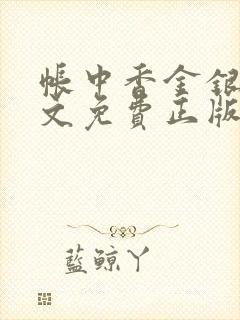 帳中香金銀
文免費正版
藍鯨丫